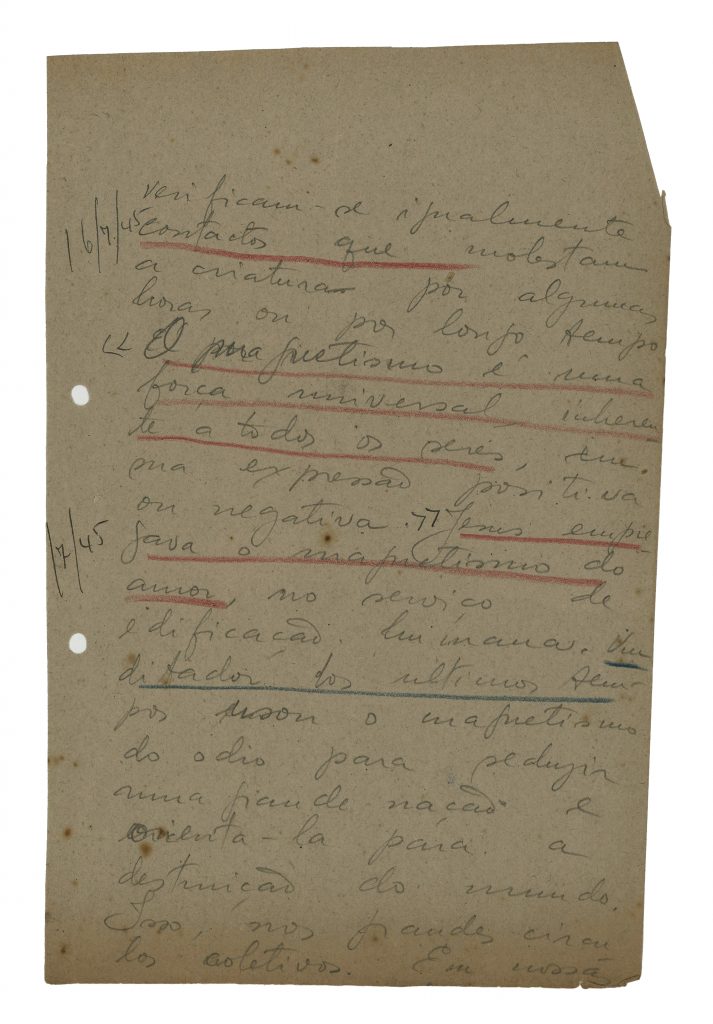 verificam-se igualmente
16/7/45
contactos que molestam
a criatura por algumas
horas ou por longo tempo
"O magnetismo é uma
força universal, inheren-
te a todos os seres, em
sua expressão positiva
ou negativa." Jesus empre-
/7/45
gava o magnetismo do
amor, no serviço de
edificação humana. Um
ditador dos ultimos tem-
pos usou o magnetismo
do odio para seduzir
uma grande nação e
orienta-la para a
destruição do mundo.
Isso, nos grandes circu
los coletivos. Em nossas